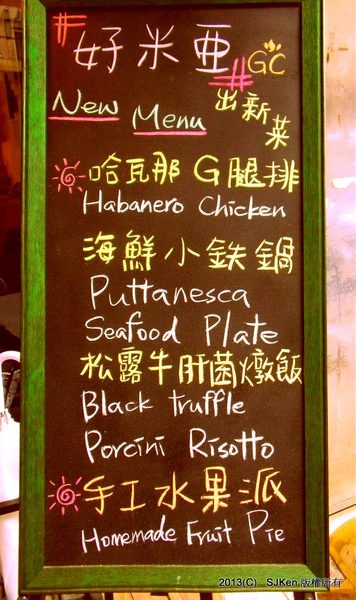 好米亞
GC
New Menu
出新菜
哈瓦那G腿排
Habanero Chicken
海鮮小鉄鍋
Puttanesca
Seafood Plate
松露牛肝菌燉飯
Black truffle
Porcini Risotto
手工水果派
Homemade Fruit Pie
2013(C) SJKen 版權所有